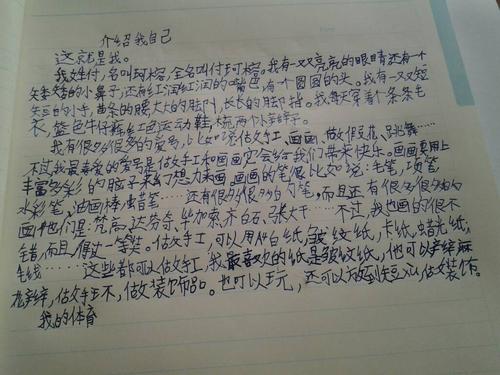 介绍我自己
这就是我。
我姓付,名叫珂榕,全名叫付珂榕。我有一双亮亮的眼睛还有一个
矮矮的小鼻子,还有红润红润的嘴巴,有一个圆圆的头。我有一双短
短的小手,苗条的腰,大大的脚叫,长长的脚。我每天穿着个条条毛
衣,蓝色牛仔裤,红色运动鞋,梳两个小辫子。
我有很多很多的爱好,比如说:做手工、画画、做假花、跳舞……
不过我最喜爱的爱好是做手工和画画它会给我们带来快乐。画画要用上
丰富多彩的脑子来幻想力来画,画画的笔像,比如说:毛笔,铅笔,
水彩笔、油画棒,蜡笔……还有很多很多的笔,而且还有很多很多的
画,他们是:梵高、达芬奇、毕加索、齐白石、张大千……不过,我也画的很不
错,而且得过一等奖。做手工,可以用A4白纸,皱纹纸,卡纸,蜡光纸,
毛线……这些都可以做手工,我最喜欢的纸是皱纹纸,他可以辫麻
花辫,做手工,做装饰品。也可以玩,还可以做装饰。
我的体育